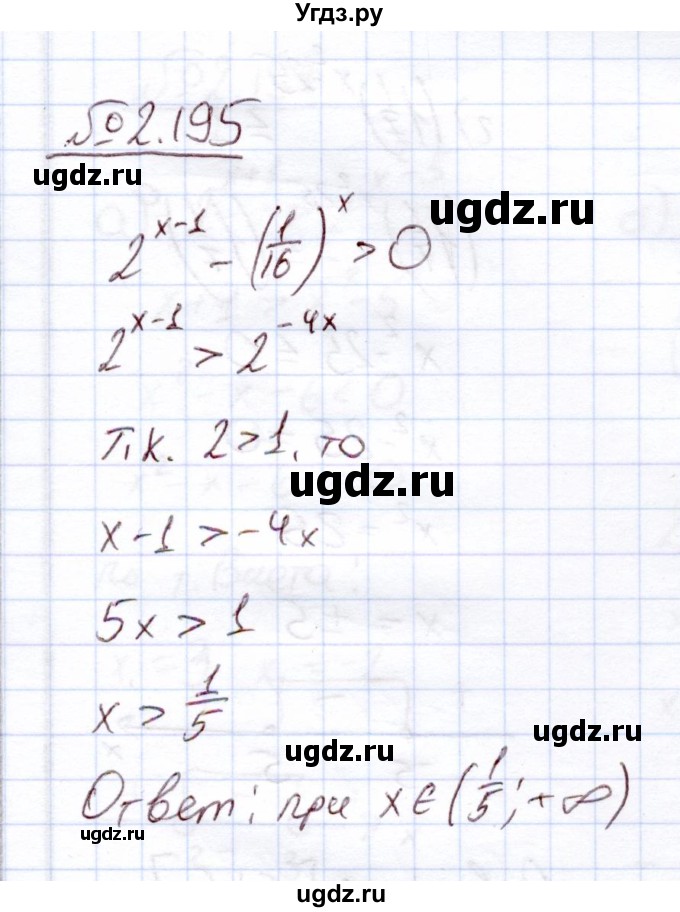 Угдз.ру
№2.195
ugdz.ru
2^(x-1) - (1/16)^x > 0
ugdz.ru
2^(x-1) > 2^(-4x)
Т.к. 2>1, то
ugdz.ru
x-1 > -4x
5x > 1
ugdz.ru
x > 1/5
ugdz.ru
Ответ: при x∈(1/5; +∞)
ugdz.ru
ugdz.ru
ugdz.ru